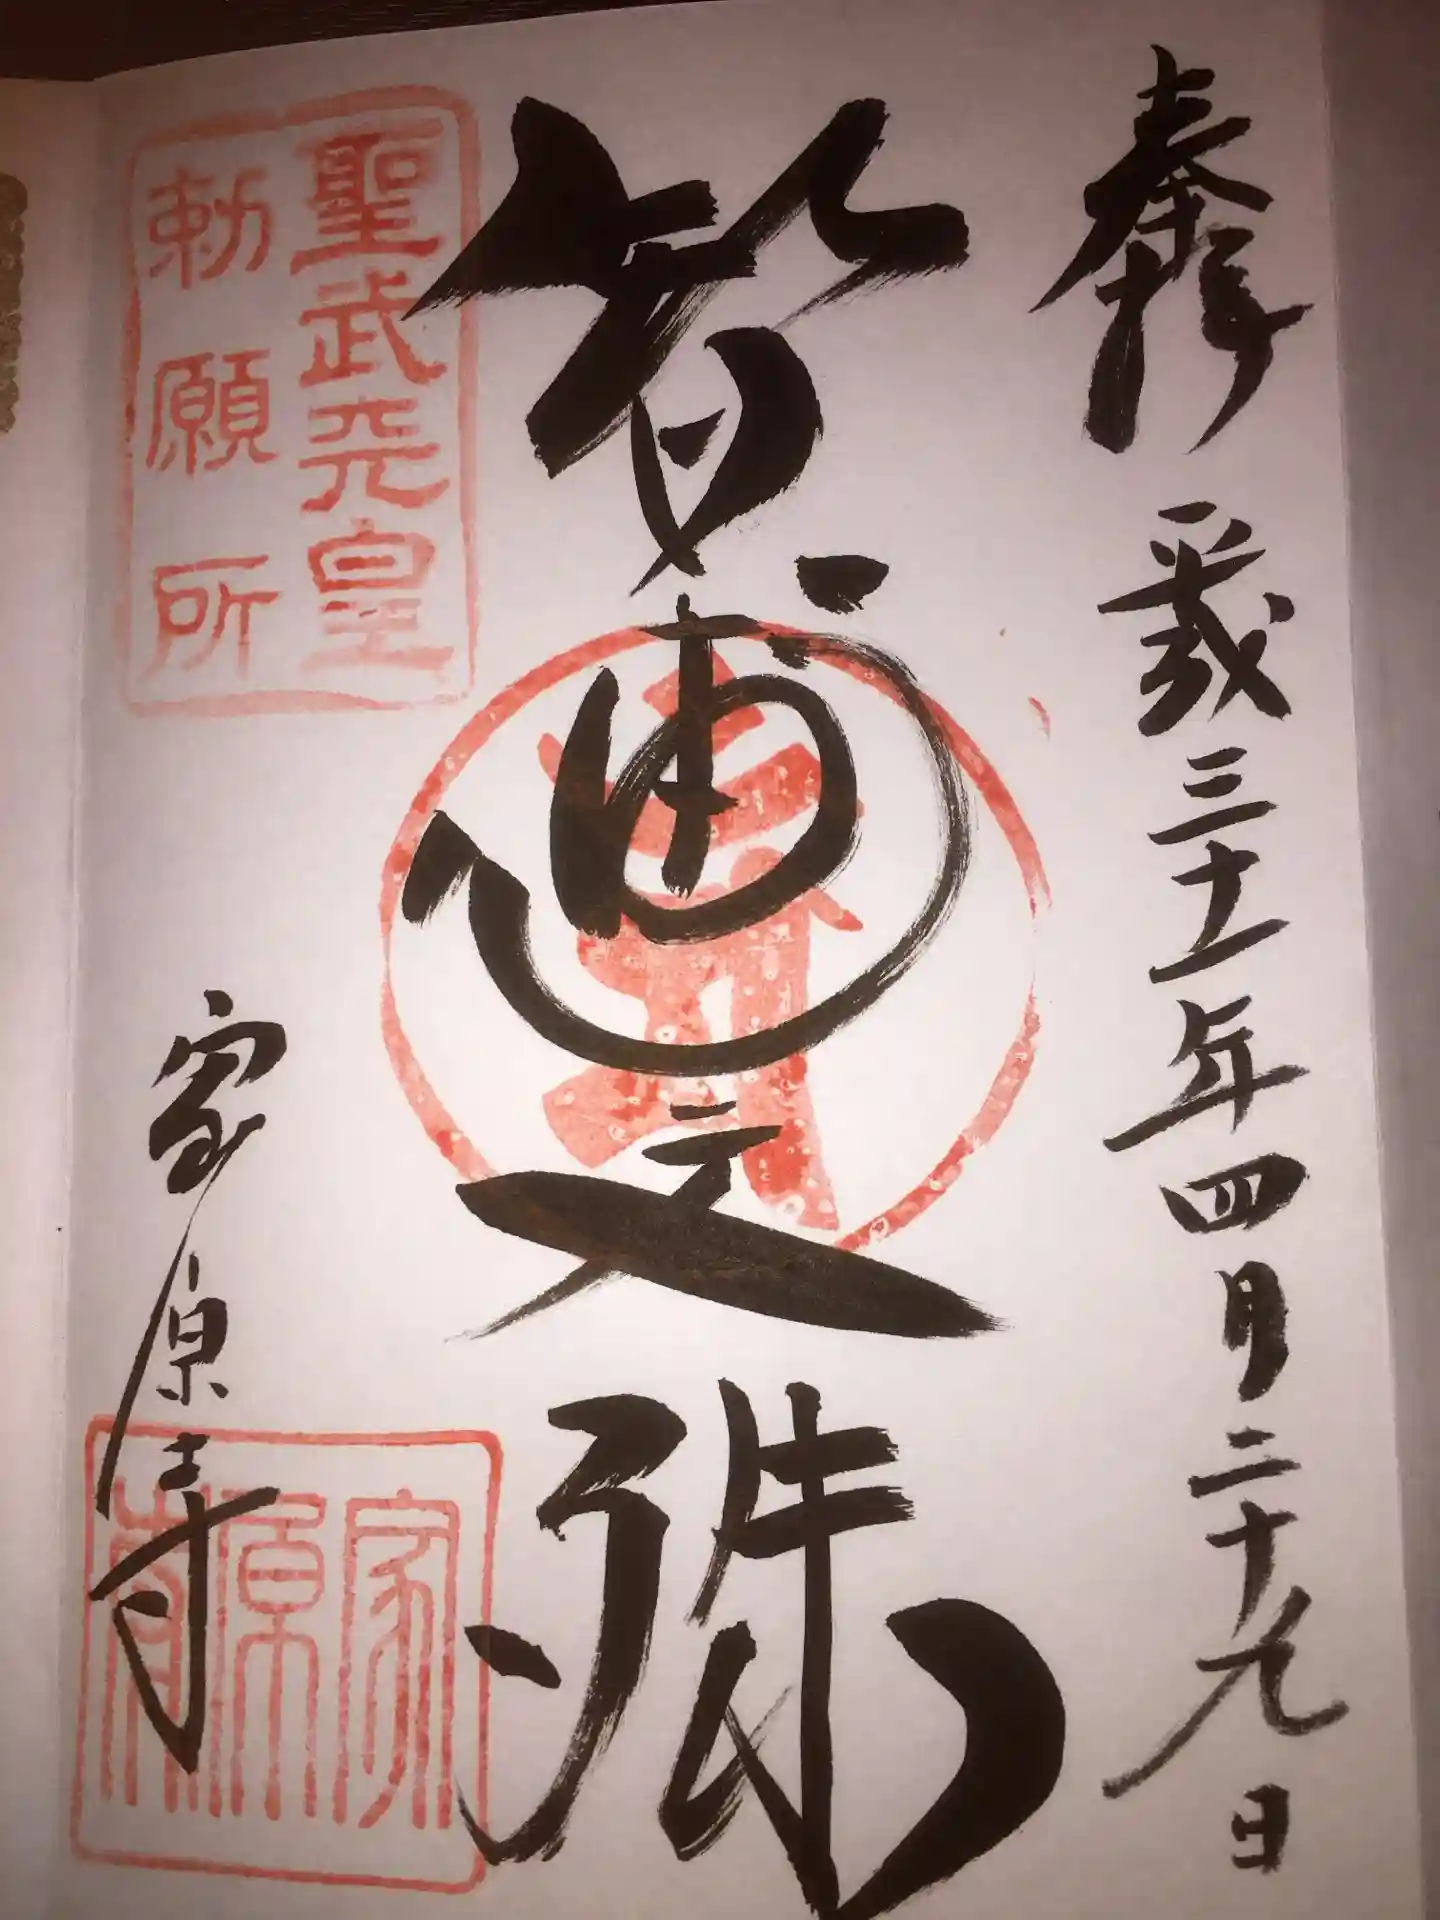 奉拝
平成三十一年四月二十九日
智恵文殊
聖武天皇
勅願所
家原寺
家原寺